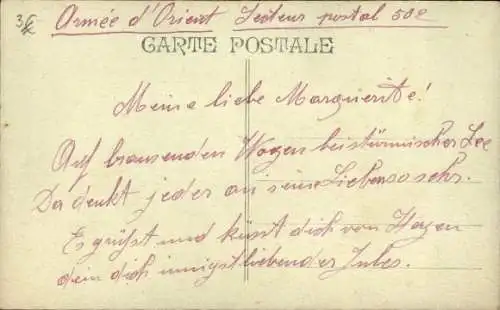 Armée d'Orient Secteur postal 502
CARTE POSTALE
Meine liebe Marguerite!
Auf brausenden Wogen bei stürmischer See
Da denkt jeder an seine Lieben so sehr.
Es grüßt und küsst dich von Herzen
dein dich innigst liebender Jules.